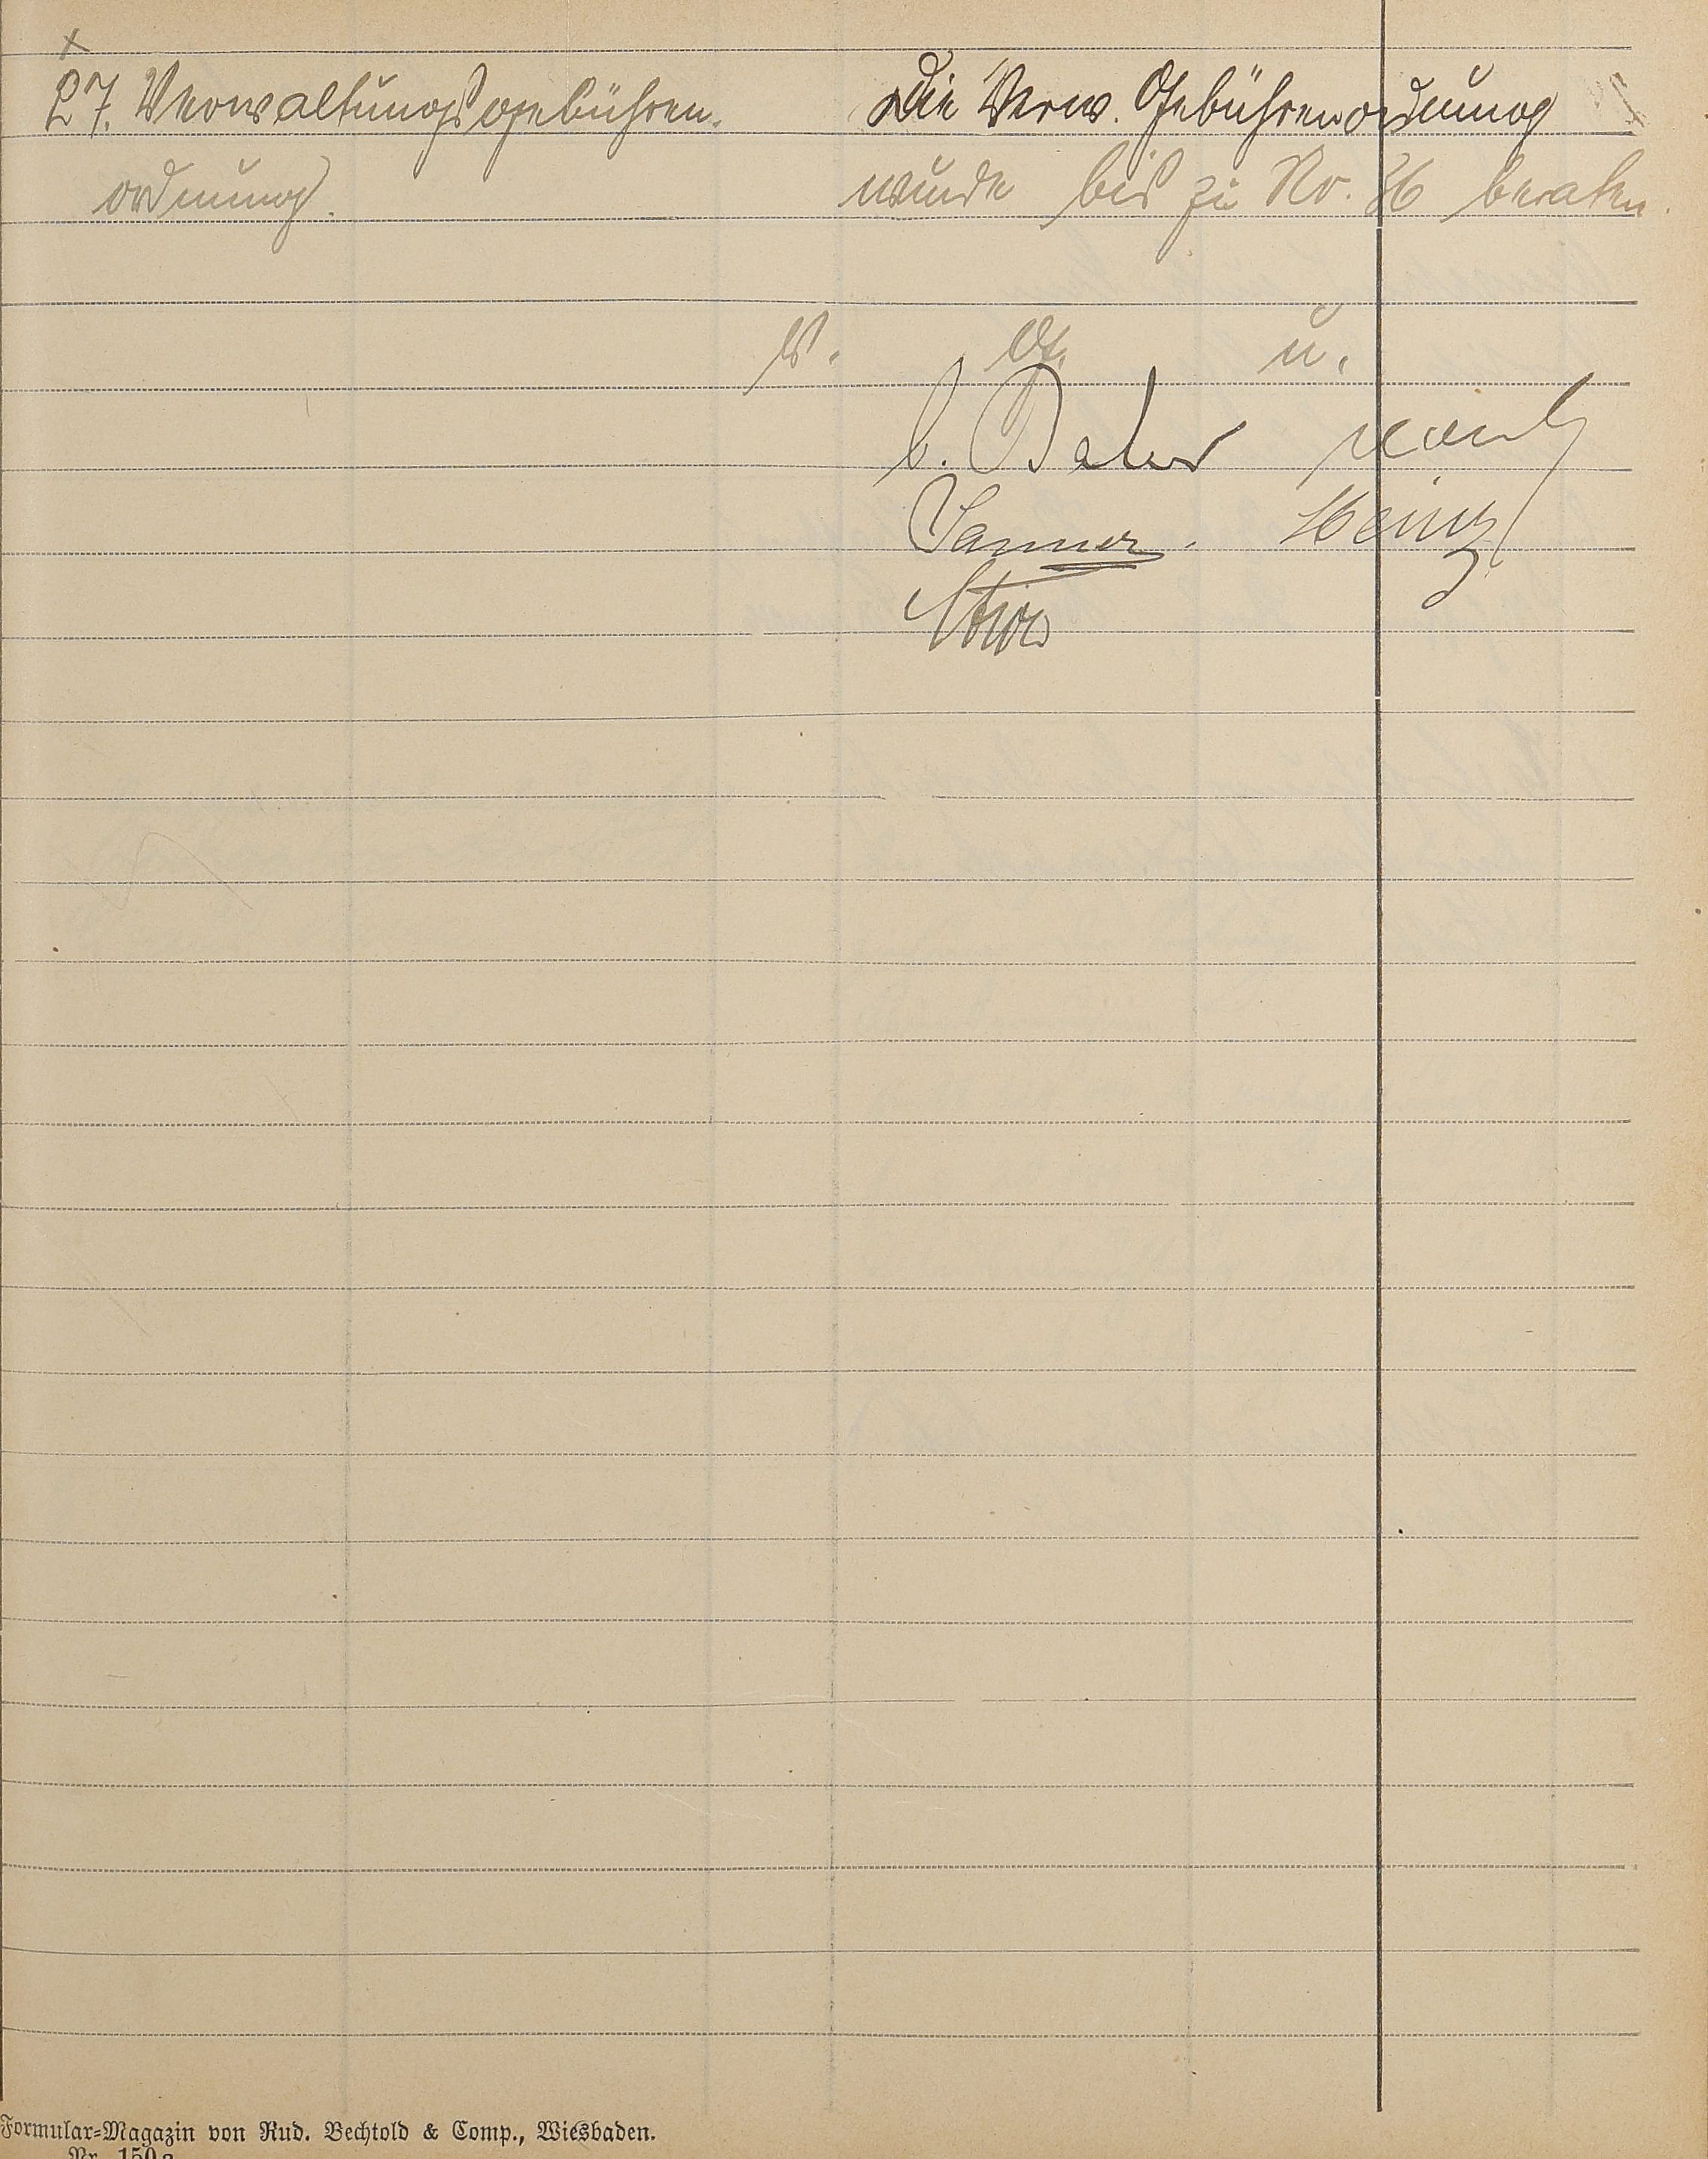 x
27. Verwaltungsgebühren-
ordnung.
Die Verw. Gebührenordnung
wurde bis zu Nr. 36 beraten.
v. G. u.
Sanner. Heinz
Formular-Magazin von Rud. Bechtold & Comp., Wiesbaden.
Nr. 150a